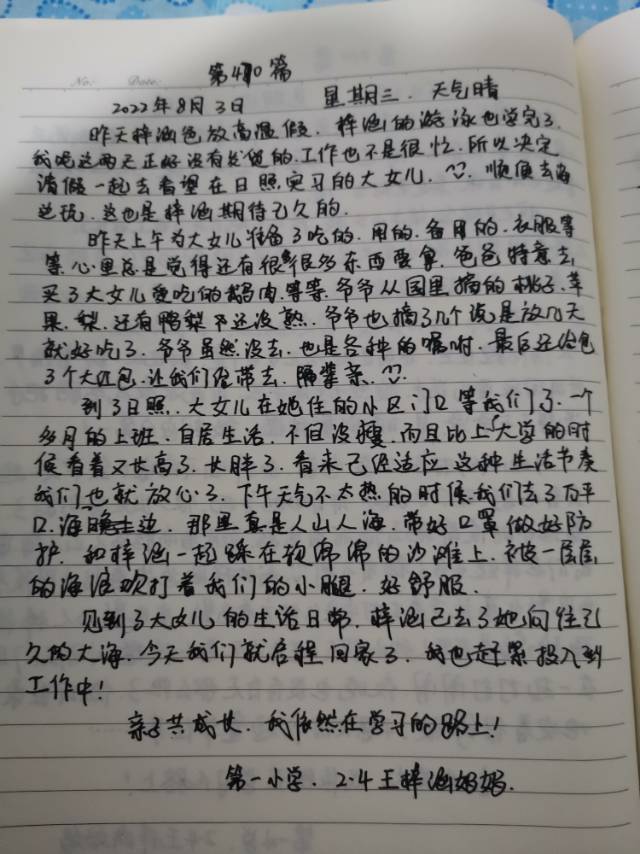 No: Date: 第470篇
2022年8月3日 星期三. 天气晴
昨天梓涵爸放高温假. 梓涵的游泳也学完了.
我呢这两天正好没有发货的.工作也不是很忙.所以决定
请假一起去看望在日照实习的大女儿. 顺便去海
边玩.这也是梓涵期待已久的.
昨天上午为大女儿准备了吃的.用的.备用的.衣服等
等.心里总是觉得还有很多很多东西要拿.爸爸特意去
买了大女儿爱吃的鹅肉等等.爷爷从园里摘的桃子.苹
果.梨.还有鸭梨不还没熟.爷爷也摘了几个说是放几天
就好吃了.爷爷虽然没去.也是各种的嘱咐.最后还给包
了个大红包.让我们给带去.隔辈亲.
到了日照.大女儿在她住的小区门口等我们了.一个
多月的上班.自居生活.不但没瘦.而且比上大学的时
候看着又长高了.长胖了.看来已经适应这种生活节奏
我们也就放心了.下午天气不太热的时候我们去了万平
口.海边.那里真是人山人海.带好口罩做好防
护.和梓涵一起踩在软绵绵的沙滩上.被一层层
的海浪吹打着我们的小腿.好舒服.
见到了大女儿的生活日常.梓涵已去了她向往已
久的大海.今天我们就启程回家了.我也赶紧投入到
工作中!
亲子共成长.我依然在学习的路上!
第一小学.2.4王梓涵妈妈.